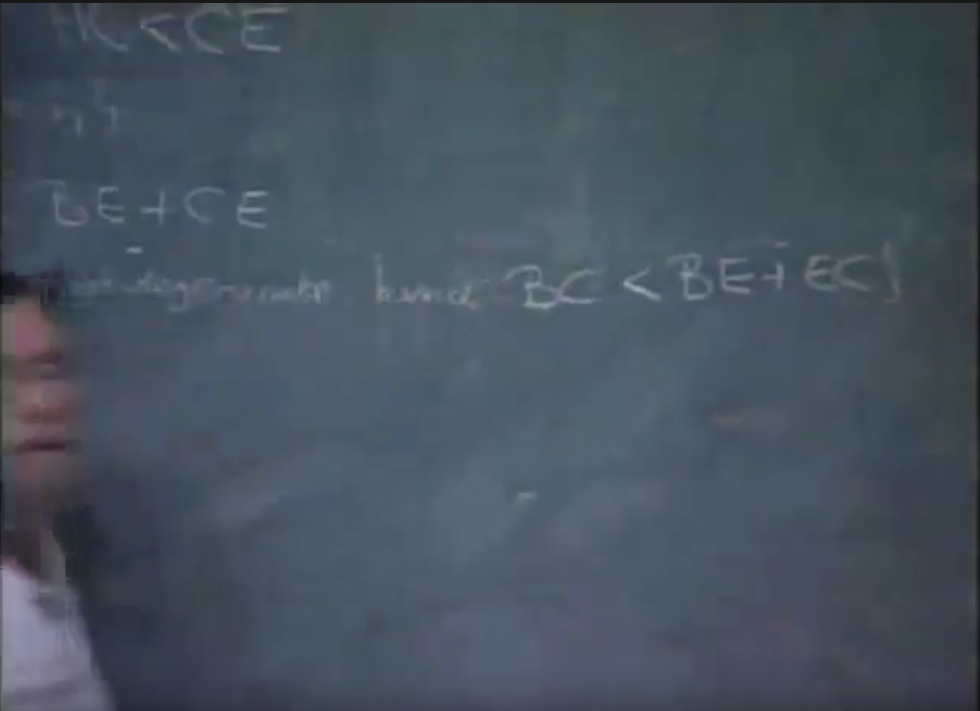 < CE
BE + CE
degenerate hence BC < BE + EC}